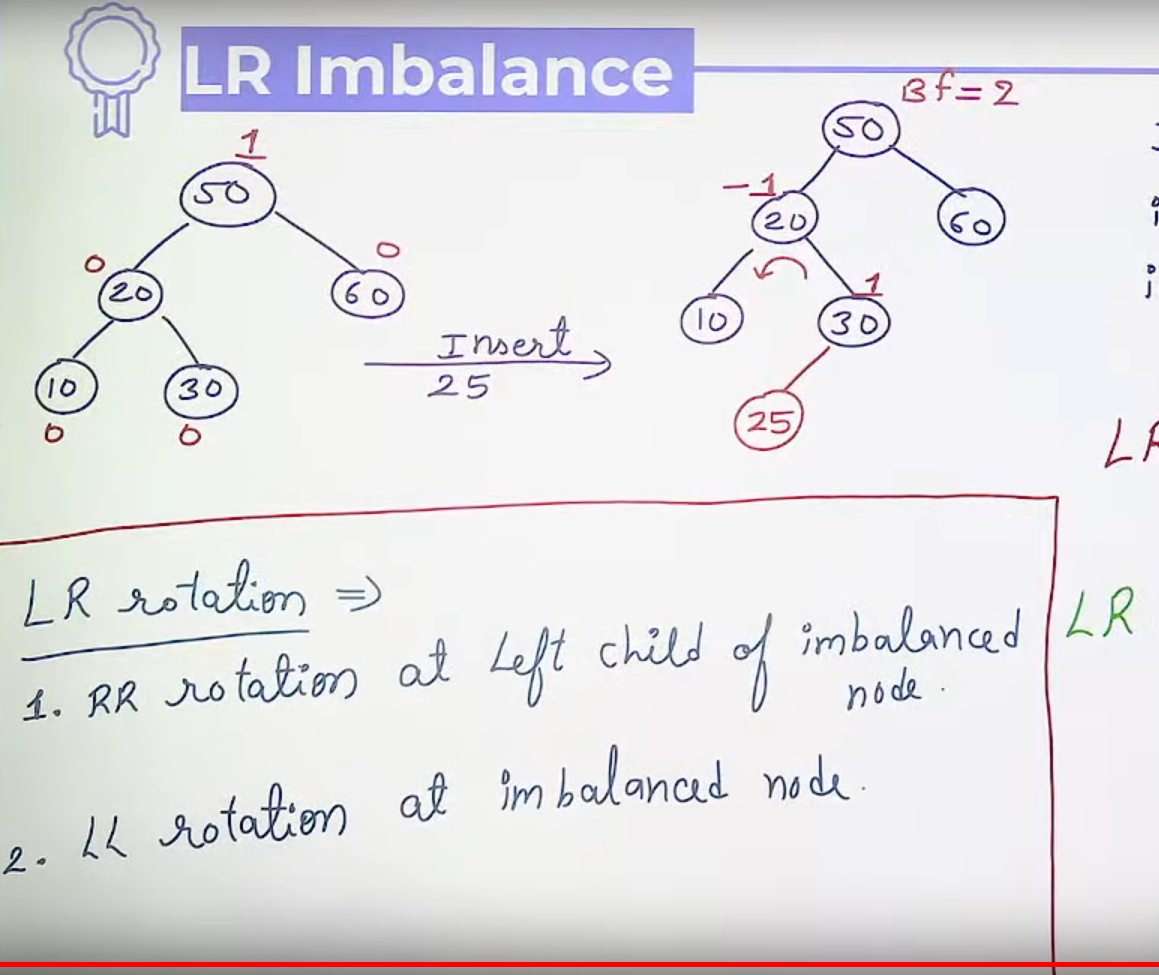 LR Imbalance
1
50
0
20
0
60
10
30
0
0
Insert
25
Bf=2
50
-1
20
60
10
1
30
25
LR rotation ⇒
1. RR rotation at Left child of imbalanced
node.
2. LL rotation at imbalanced node.
LR